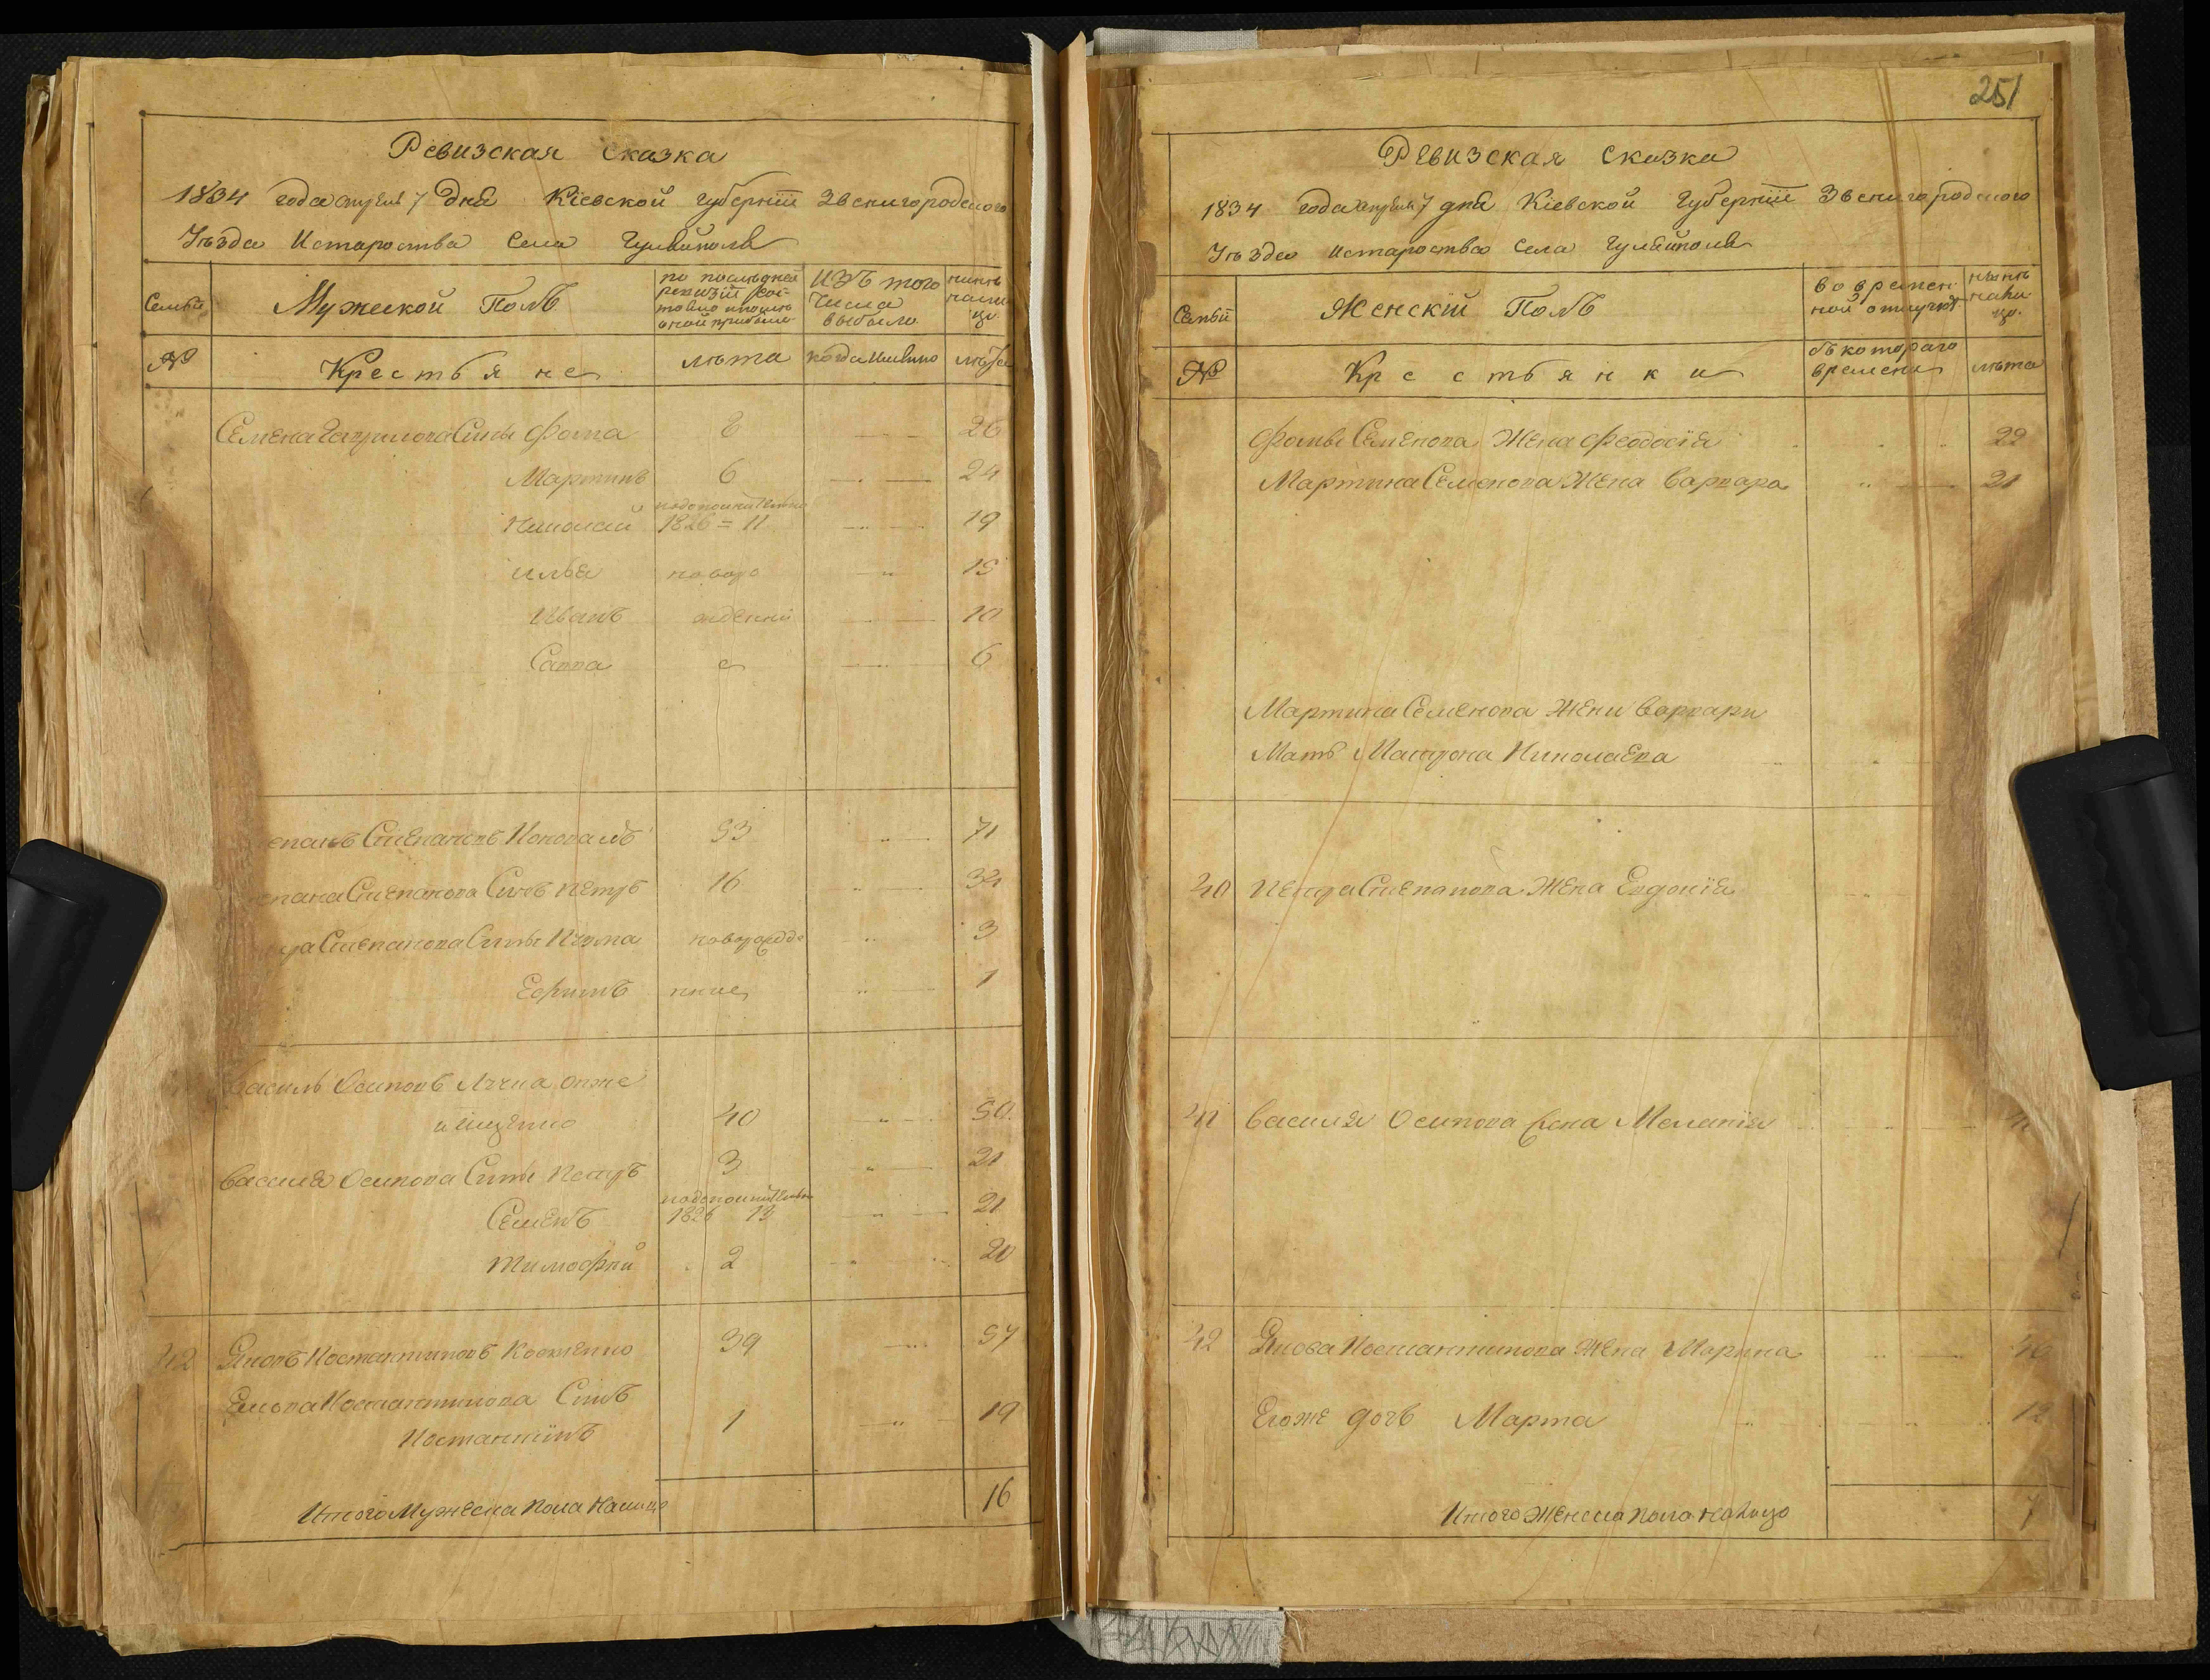 Ревизская сказка
1834 года апреля 7 дня Кіевской губерніи Звенигородского
Уѣзда Истароства Села Гуляйполя
Семьи
Мужеской Полъ
по послѣдней ревизіи состояло и послѣ оной прибыло
Изъ того числа выбыло
нынѣ налицо
№
Крестьяне
лѣта
когда имянно
лѣта
Семена Гаврилова Сины Фома 8 26
Мартинъ 6 24
подополнительно
Николай 1826 = 11 19
Илья новоро 15
Иванъ жденни 10
Савва е 6
епанъ Степановъ Коновалъ 53 71
епана Степанова Синъ Петръ 16 34
ра Степанова Сины Кузма новорожде 3
Ефимъ нние 1
Василь Осиповъ онже
40 50
Василя Осипова Сины Петръ 3 21
подополнительно
Семенъ 1826 13 21
Тимофѣй 2 20
42 Яковъ Костантиновъ 39 57
Якова Костантинова Синъ
Костантинъ 1 19
Итого Мужеска пола налицо 16
251
Ревизская сказка
1834 года апреля 7 дня Кіевской Губерніи Звенигородского
Уѣзда Истароства Села Гуляйполя
Семьи
Женскій Полъ
во временной отлучкѣ
нынѣ налицо
№
Крестьянки
съ котораго времени
лѣта
Фомы Семенова Жена Феодосія 22
Мартина Семенова Жена Варвара 21
Мартина Семенова Жени Варвари
Мать Матрона Николаева
40 Петра Степанова Жена Евдокія
41 Василя Осипова Жена Меланія
42 Якова Костантинова Жена Марина 40
Егоже дочь Марта 12
Итого Женска пола налицо 7